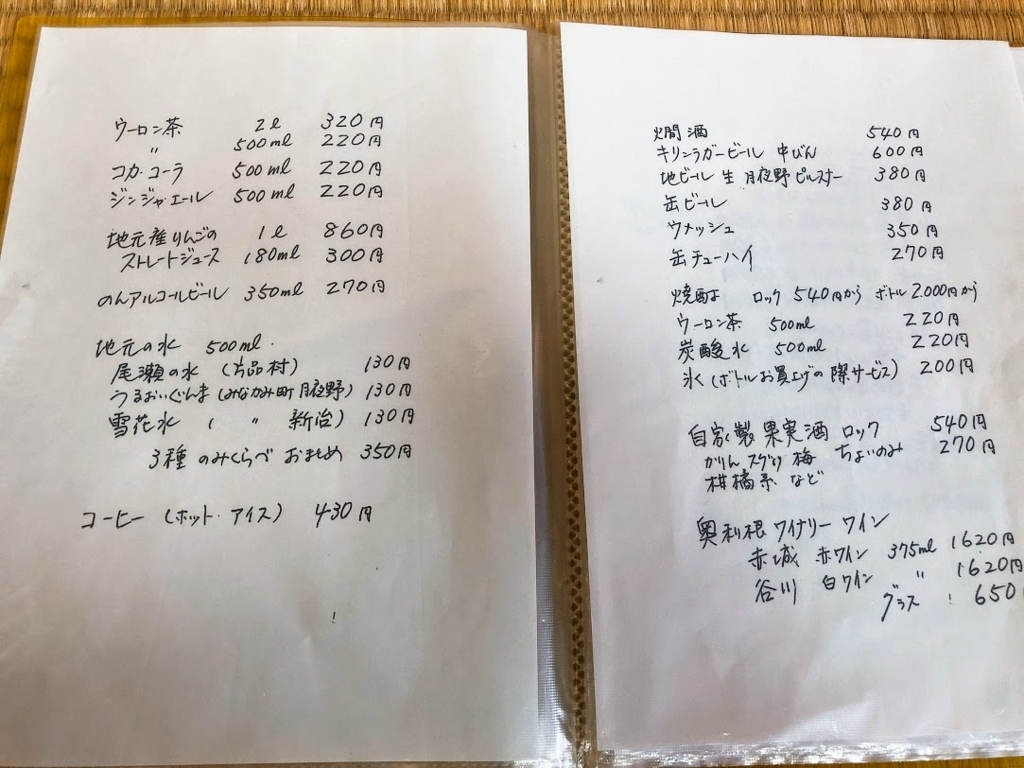 ウーロン茶 2ℓ 320円
〃 500ml 220円
コカ・コーラ 500ml 220円
ジンジャエール 500ml 220円
地元産りんごの 1ℓ 860円
ストレートジュース 180ml 300円
のんアルコールビール 350ml 270円
地元の水 500ml.
尾瀬の水 (片品村) 130円
うるおいぐんま (みなかみ町 月夜野) 130円
雪花水 ( 〃 新治) 130円
3種 のみくらべ おまとめ 350円
コーヒー (ホット・アイス) 430円
燗酒 540円
キリンラガービール 中びん 600円
地ビール 生 月夜野ピルスナー 380円
缶ビール 380円
ウメッシュ 350円
缶チューハイ 270円
焼酎は ロック 540円から ボトル 2.000円から
ウーロン茶 500ml 220円
炭酸水 500ml 220円
氷 (ボトルお買上げの際サービス) 200円
自家製果実酒 ロック 540円
かりん スグリ 梅 ちょいのみ 270円
柑橘系 など
奥利根ワイナリー ワイン
赤城 赤ワイン 375ml 1620円
谷川 白ワイン 〃 1620円
グラス 650